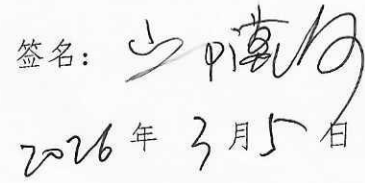 签名：
2026年3月5日